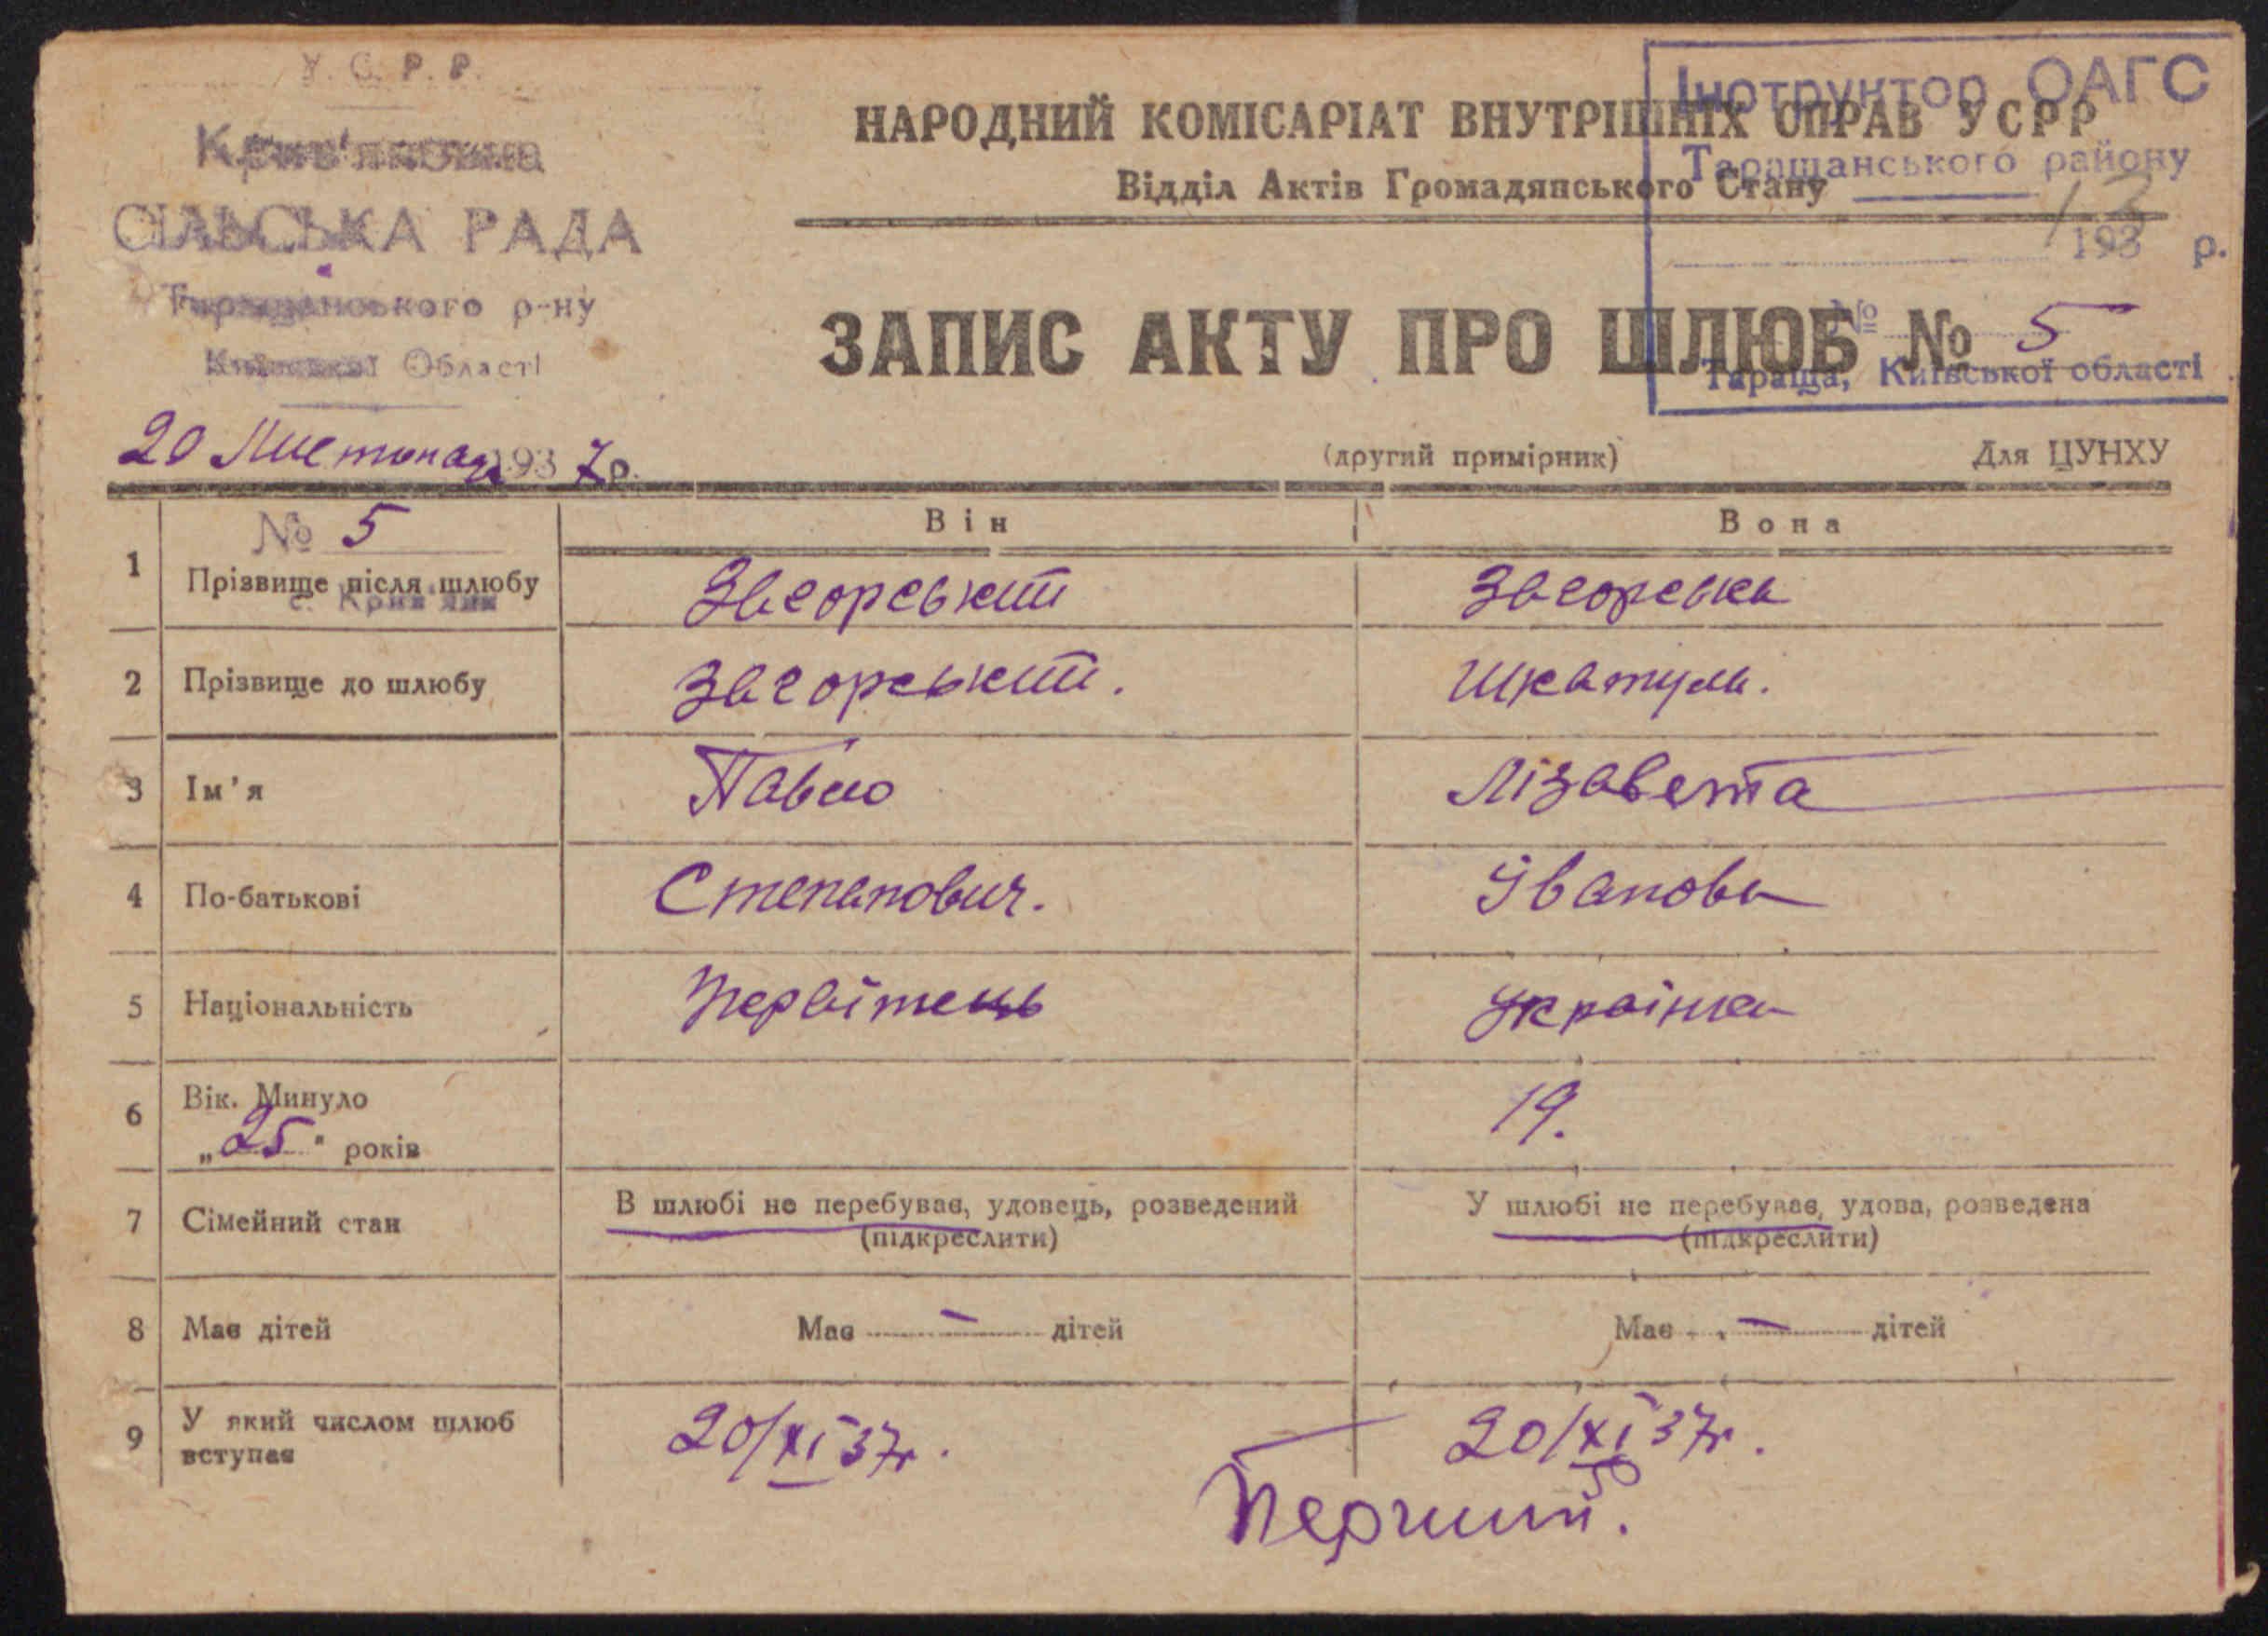 У. С. Р. Р.
СІЛЬСЬКА РАДА
Таращанського р-ну
Київської Області
20 Листопада 1937 р.
Інструктор ОАГС
Таращанського району
193 р.
№
Тараща, Київської області
НАРОДНИЙ КОМІСАРІАТ ВНУТРІШНІХ СПРАВ УСРР
Відділ Актів Громадянського Стану
13
ЗАПИС АКТУ ПРО ШЛЮБ № 5
(другий примірник) Для ЦУНХУ
№ 5
Він Вона
1 Прізвище після шлюбу Загорський Загорська
2 Прізвище до шлюбу Загорський. Шкатула.
3 Ім'я Павло Лізавета
4 По-батькові Степанович. Іванова
5 Національність Українка
6 Вік. Минуло „25" років 19.
7 Сімейний стан В шлюбі не перебуває, удовець, розведений У шлюбі не перебуває, удова, розведена
(підкреслити) (підкреслити)
8 Має дітей Має — дітей Має — дітей
9 У який числом шлюб вступає 20/XI 37р. 20/XI 37р.
Перший.